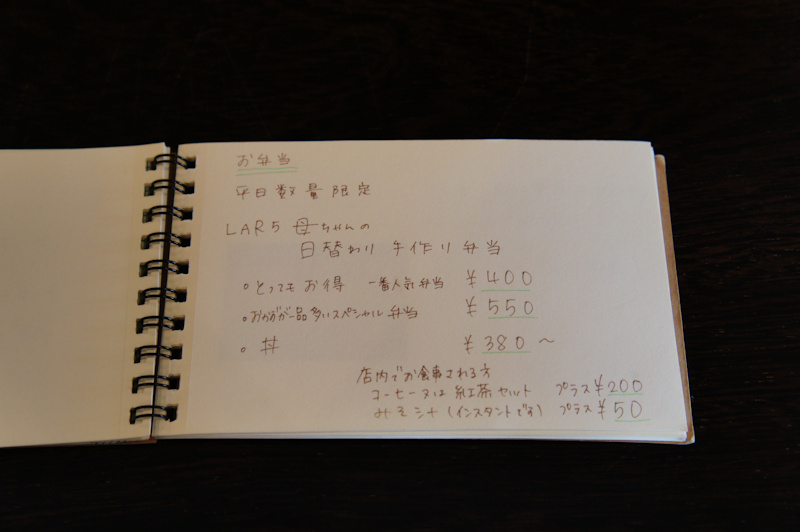 お弁当
平日数量限定
LAR5 母ちゃんの
日替わり 手作り弁当
。とってもお得 一番人気弁当 ¥400
。おかずが一品多いスペシャル弁当 ¥550
。丼 ¥380〜
店内でお食事される方
コーヒー又は紅茶セット プラス¥200
みそ汁(インスタントです) プラス¥50